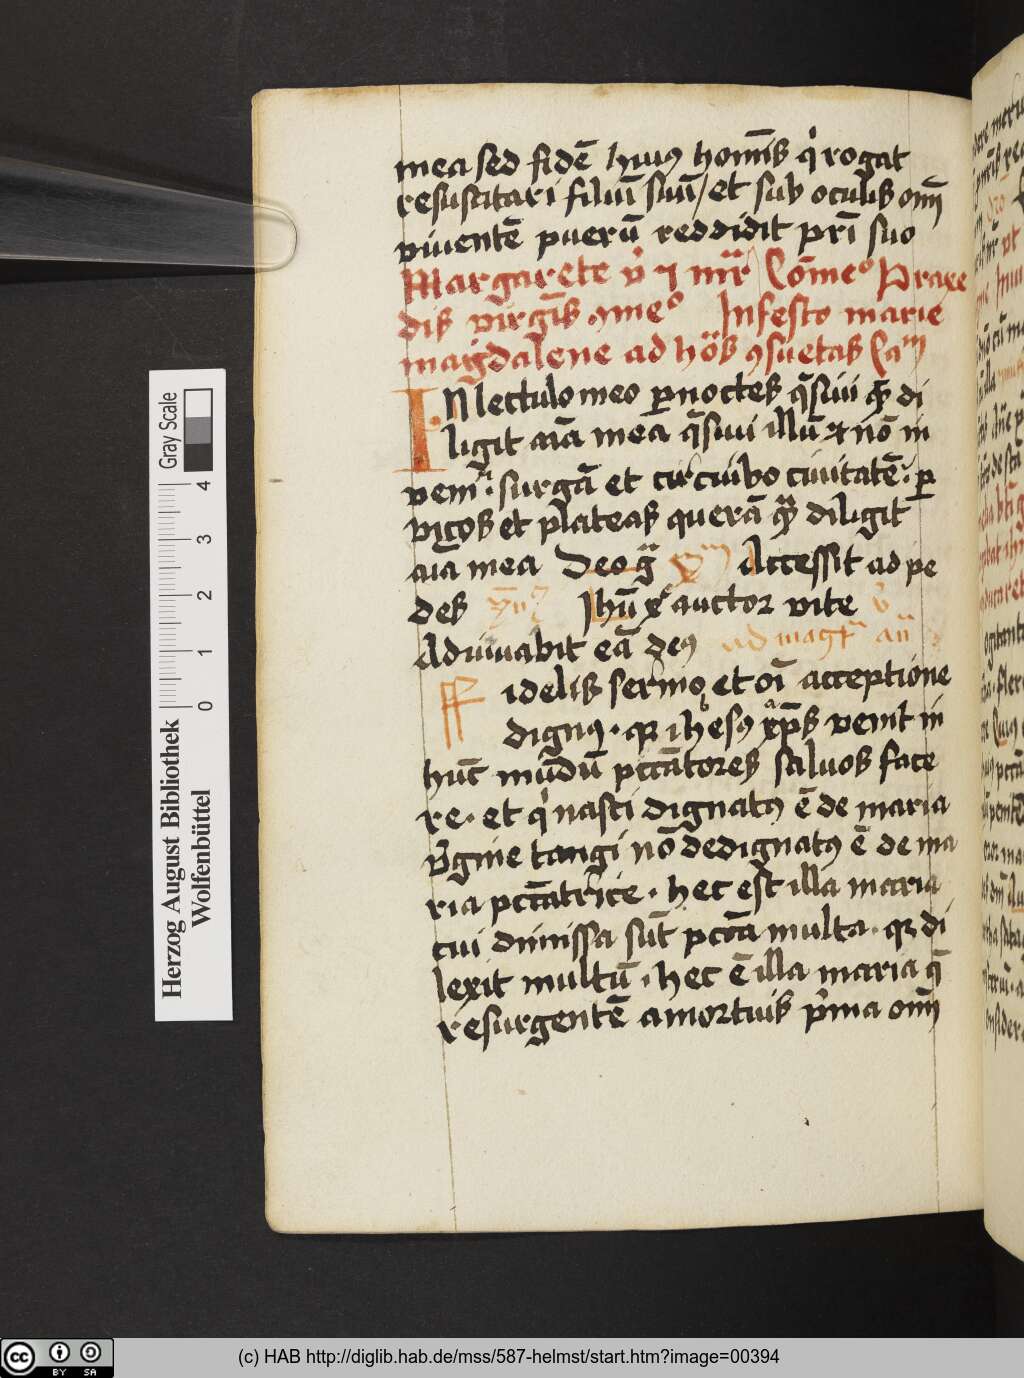 mea sed fidē hui⁹ homīs q̇ rogat
resuscitari filiū suū / et sub oculis oīm
viventē puerū reddidit pr̄i suo
Margarete v̇ ⁊ mr̄ Cōme⁰ Praxe
dis virgīs ꝯme⁰ In festo marie
magdalene ad hōs ꝯsuetas Caᵐ
IN lectulo meo ꝑ noctes q̄siui q̄ di
ligit aīa mea q̄siui illū ⁊ nō in
veni · surgā et circuibo ciuitatē · ꝑ
vicos et plateas querā q̄ diligit
aīa mea Deo gr̄a Accessit ad pe
des Ihū xᵉ auctor vite v̇
Adiuuabit eā de⁹ ad magᵗ añ
Fidelis sermo et oī acceptione
dign⁹ · qꝛ ihes⁹ xp̄s venit in
hūc mūdū pctātores saluos face
re · et q̇ nasci dignat⁹ ē de maria
v̇gine tangi nō dedignat⁹ ē de ma
ria pctātrice · hec est illa maria
cui dimissa sūt pctā multa · qꝛ di
lexit multū · hec ē illa maria q̄
resurgentē a mortuis ṗma oīm
Gray Scale
0 1 2 3 4
Herzog August Bibliothek
Wolfenbüttel
cc BY SA
(c) HAB http://diglib.hab.de/mss/587-helmst/start.htm?image=00394